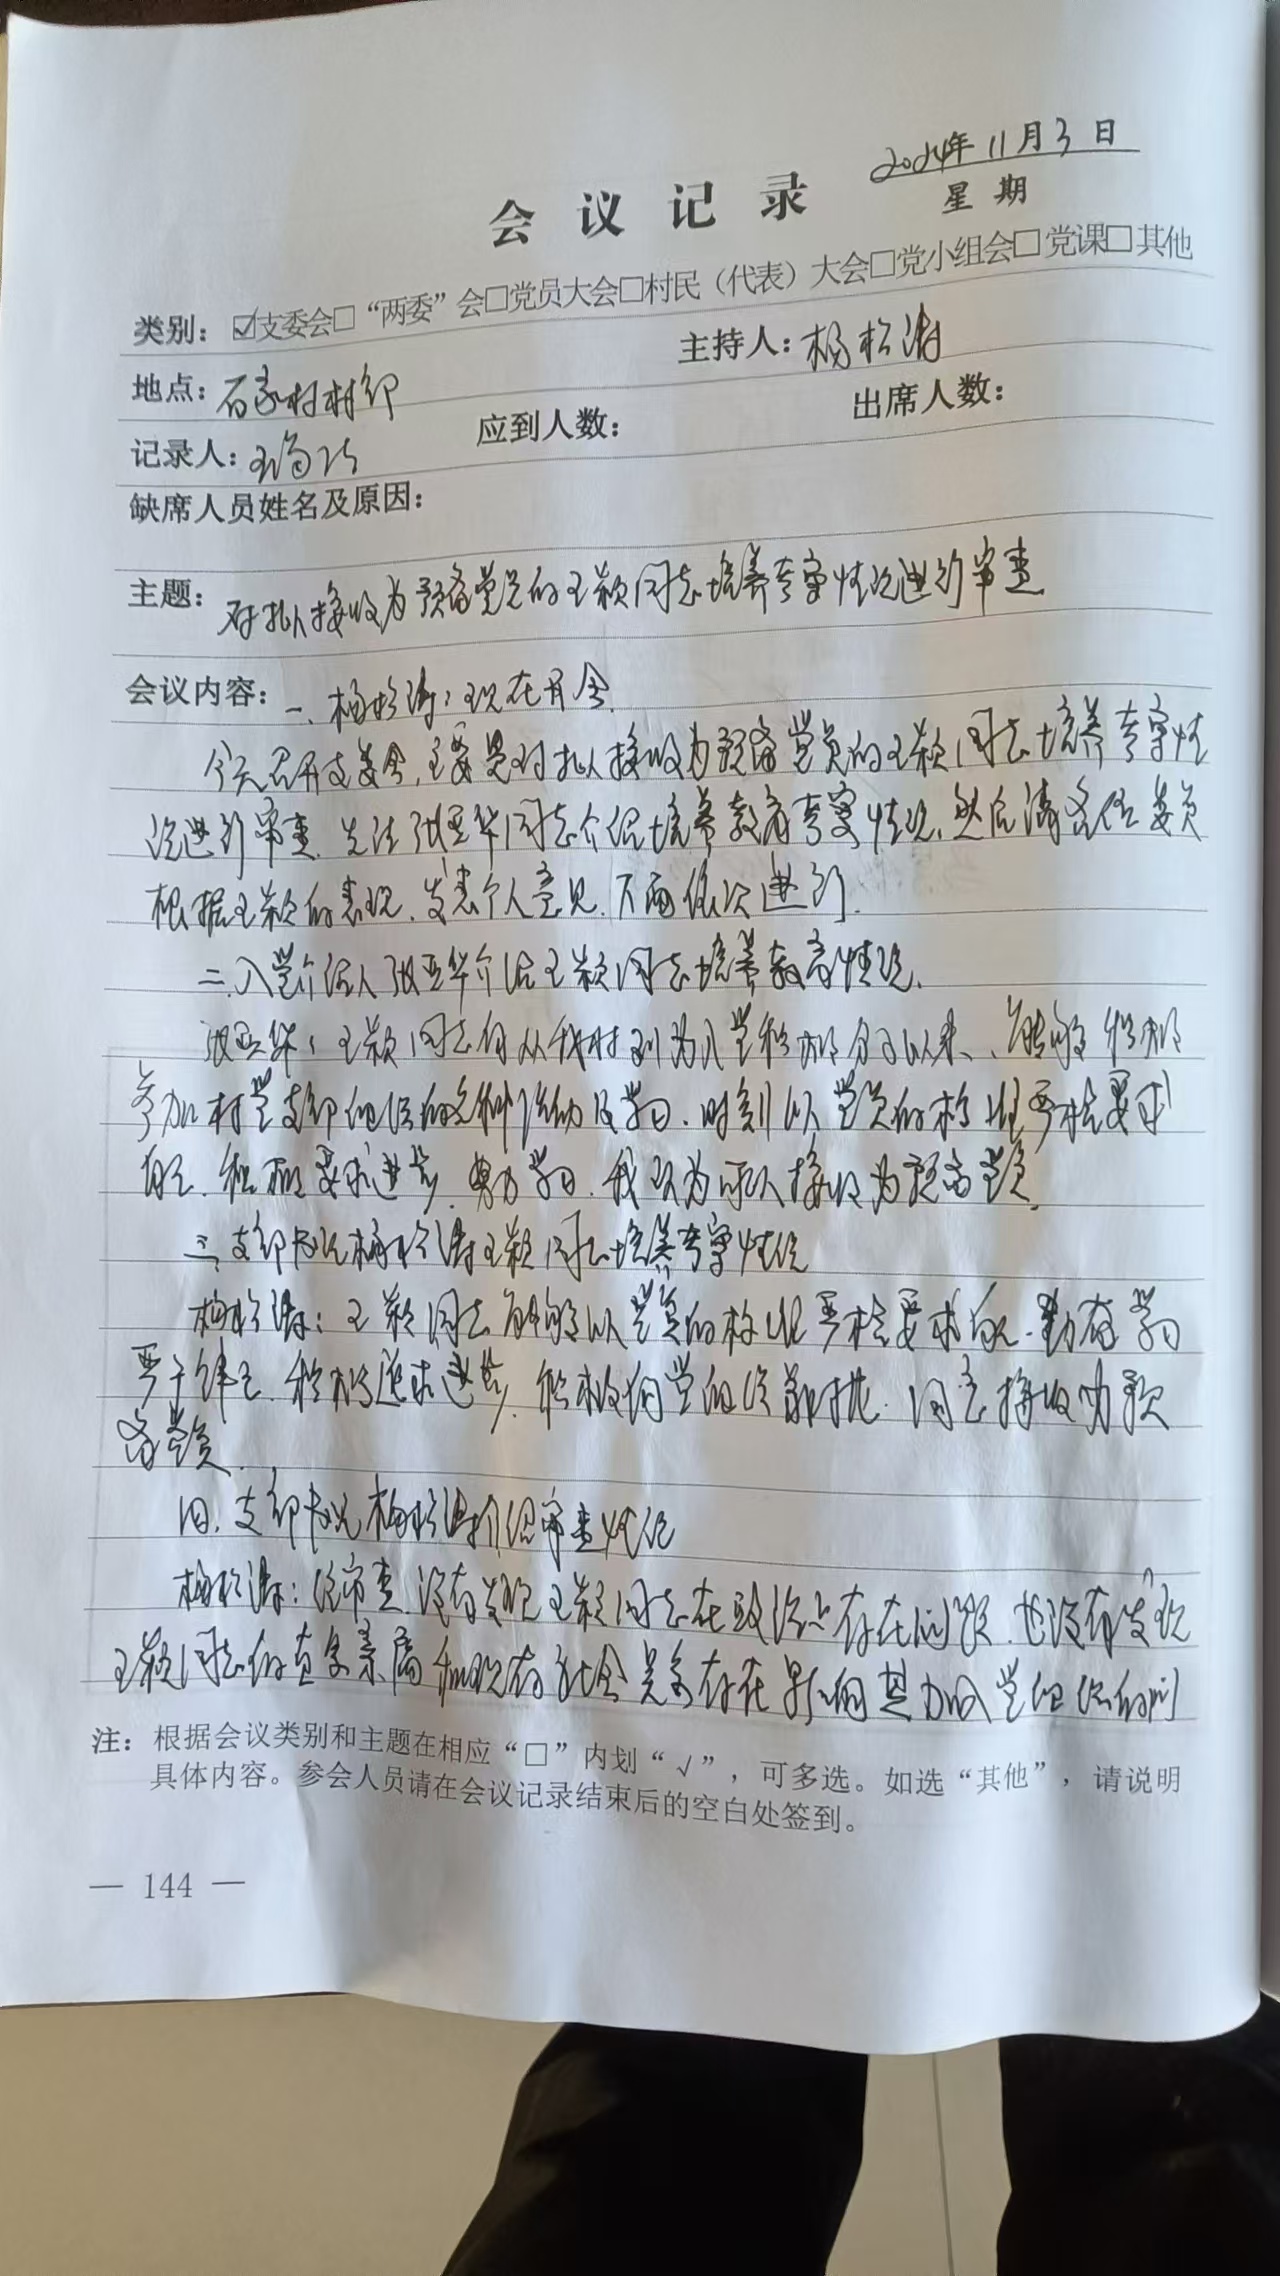 2024年11月3日
会议记录
星期
类别：☑支委会□“两委”会□党员大会□村民（代表）大会□党小组会□党课□其他
地点：石家村村部 主持人：杨松涛
记录人：王 应到人数： 出席人数：
缺席人员姓名及原因：
主题：对拟接收为预备党员的王颖同志培养考察情况进行审查
会议内容：一、杨松涛：现在开会.
今天召开支委会，主要是对拟接收为预备党员的王颖同志培养考察情
况进行审查.先让张亚华同志介绍培养教育考察情况、然后请各位委员
根据王颖的表现、发表个人意见.下面依次进行.
二、入党介绍人张亚华介绍王颖同志培养教育情况.
张亚华：王颖同志自从我村列为入党积极分子以来、能够积极
参加村党支部组织的各种活动及学习.时刻以党员的标准严格要求
自己.积极要求进步.努力学习.我认为可以接收为预备党员.
三、支部书记杨松涛王颖同志培养考察情况
杨松涛：王颖同志能够以党员的标准严格要求自己.勤奋学习
严于律己.积极追求进步.积极向党组织靠拢.同意接收为预
备党员.
四、支部书记杨松涛介绍审查情况
杨松涛：经审查.没有发现王颖同志在政治上存在问题.也没有发现
王颖同志的直系亲属和现有社会关系存在影响其加入党组织的问
注：根据会议类别和主题在相应“□”内划“√”，可多选。如选“其他”，请说明
具体内容。参会人员请在会议记录结束后的空白处签到。
— 144 —